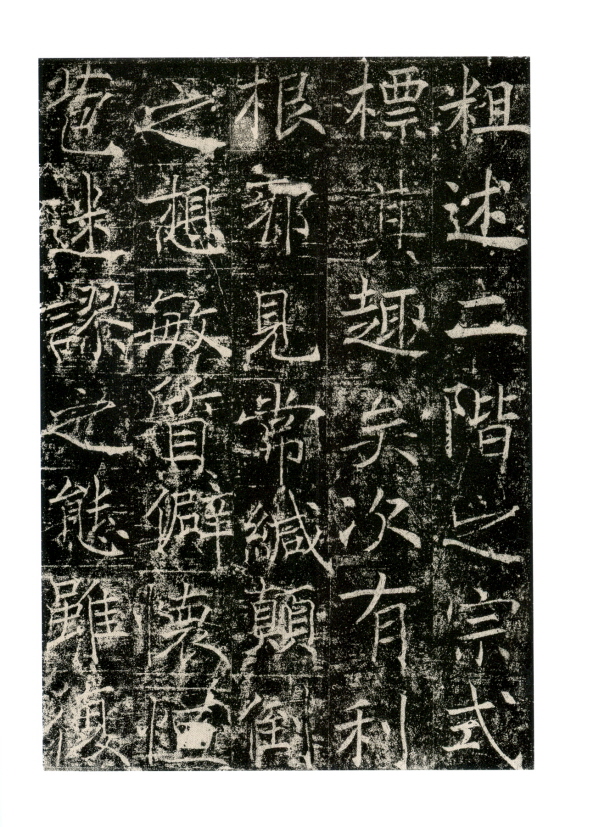 粗述二階之宗式
標其趣矣次有利
根邪見常緘顛倒
之想敏質僻懷恒
苞迷謬之態雖復